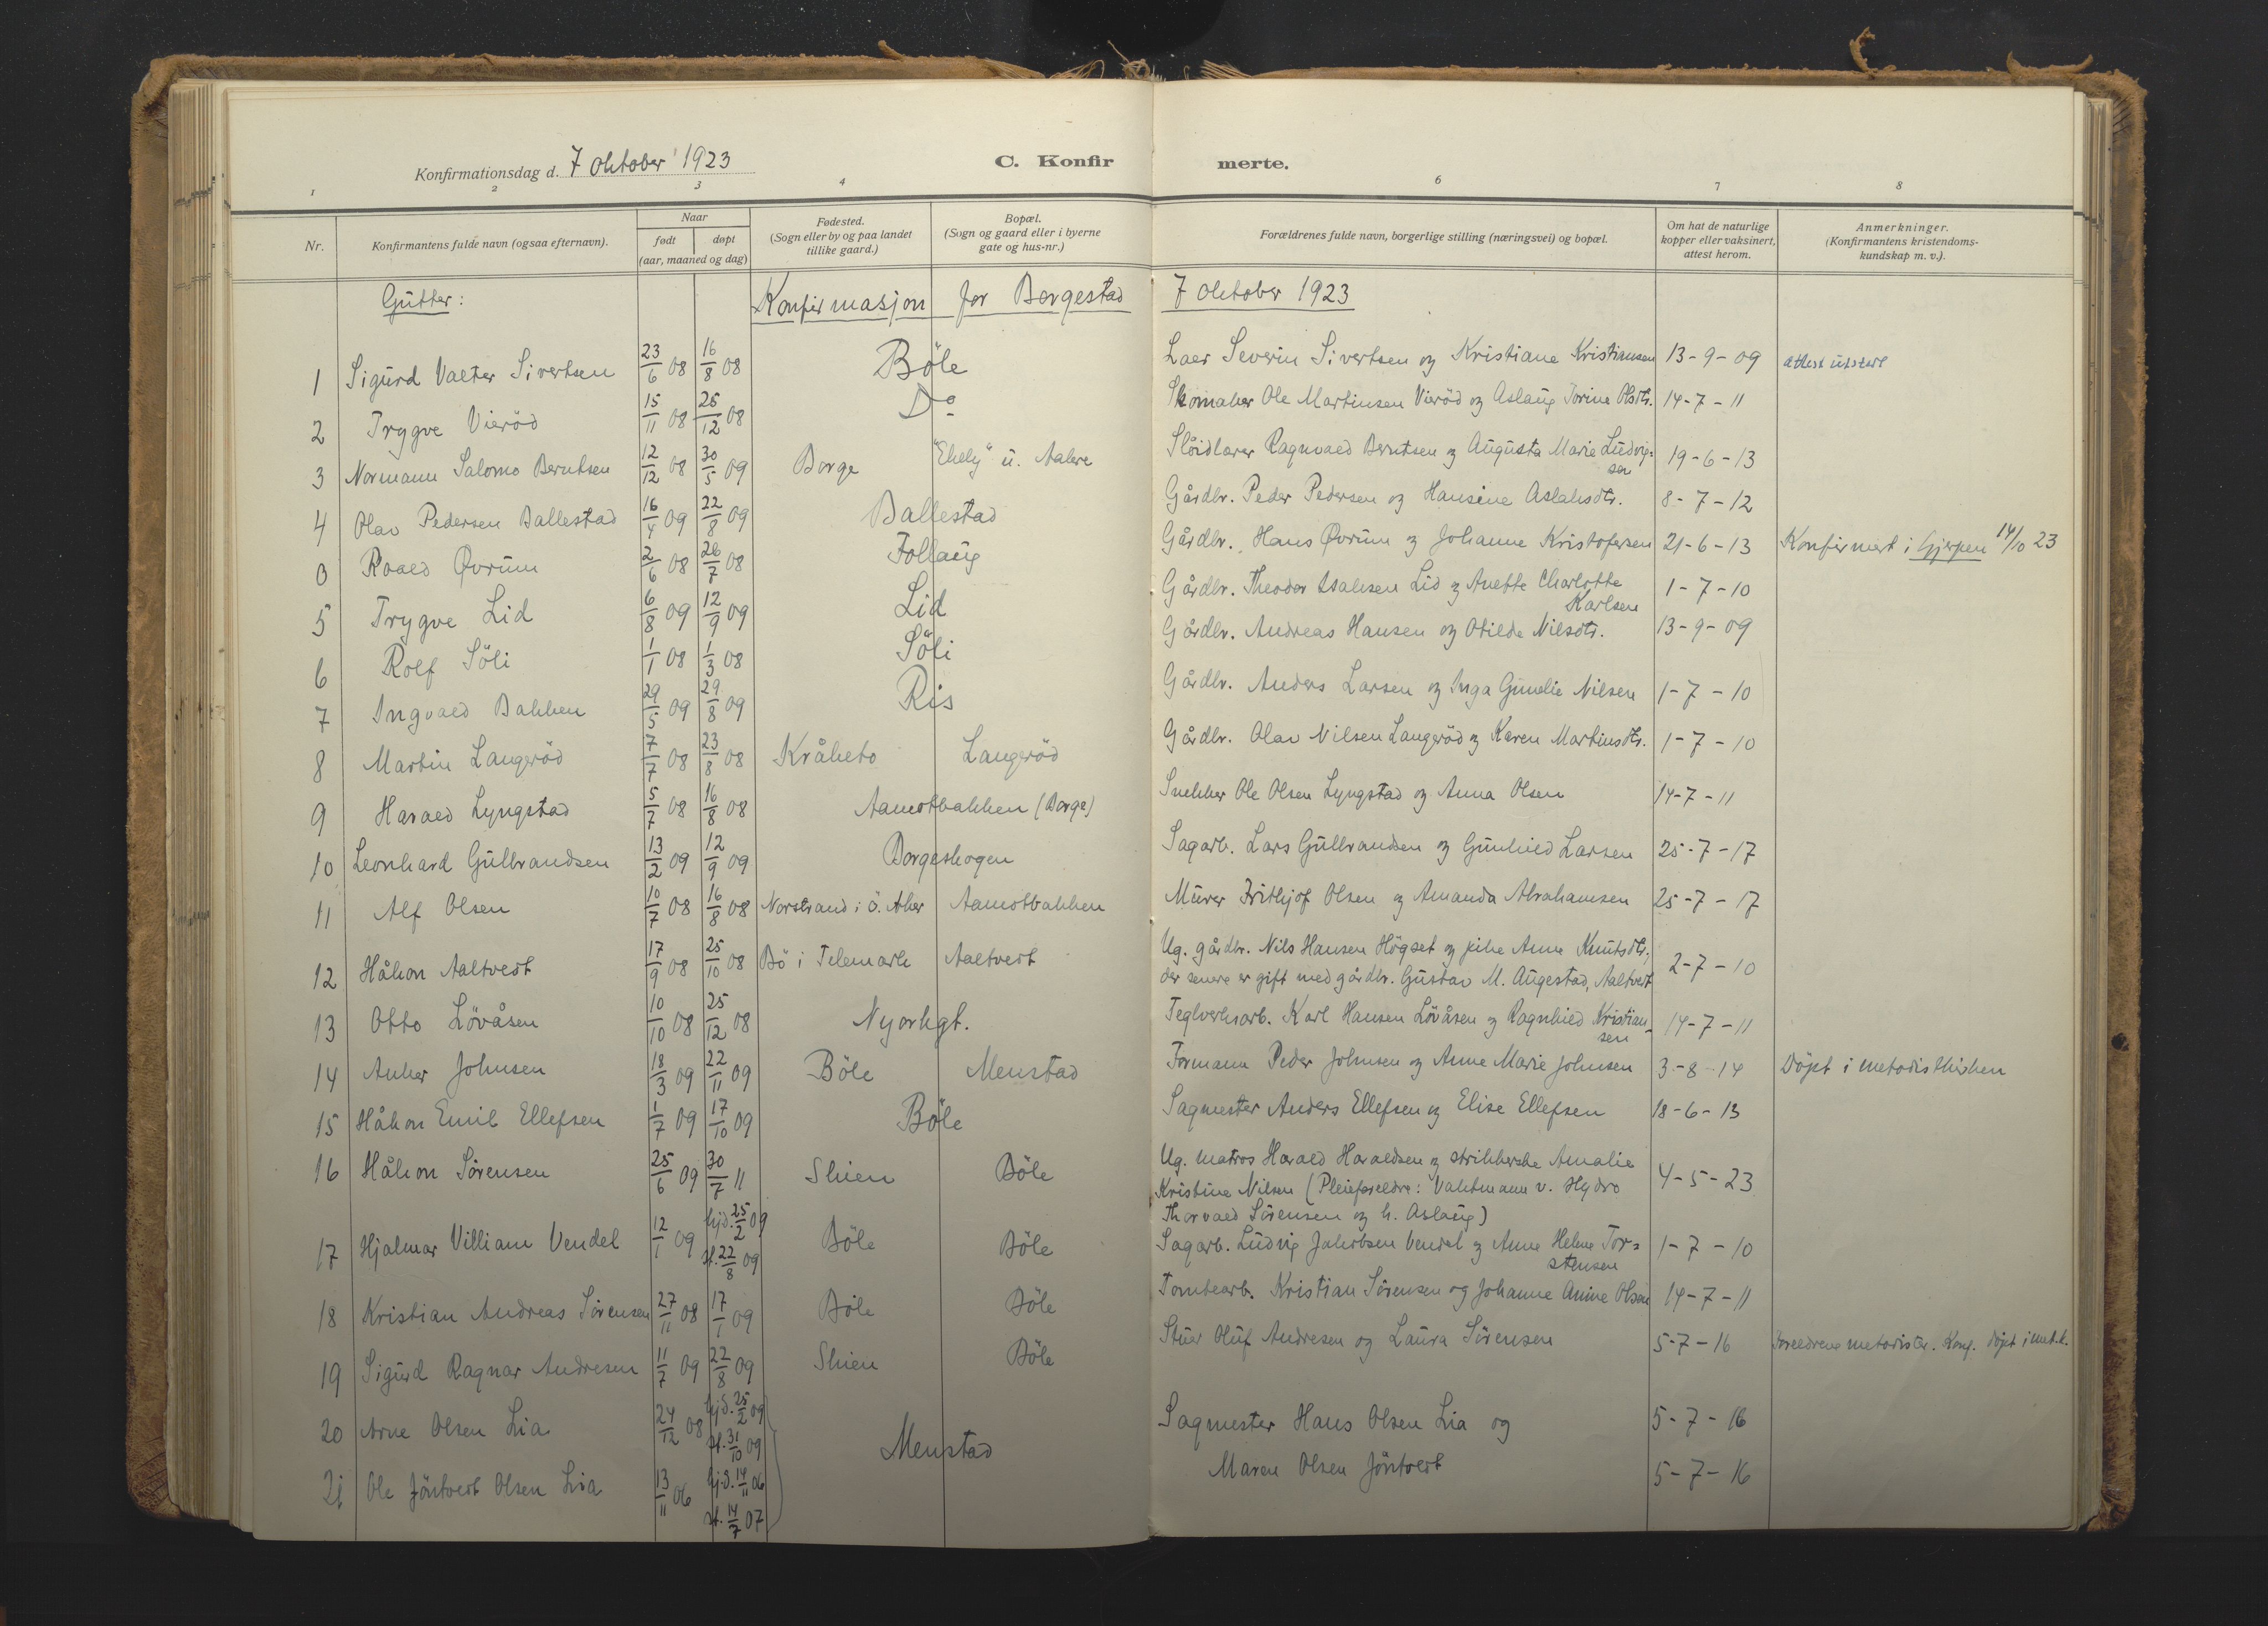 Konfirmationsdag d. 7 Oktober 1923
C. Konfir
merte.
1 2 3 4 6 7 8
Nr.
Konfirmantens fulde navn (ogsaa efternavn).
Naar
født døpt
(aar, maaned og dag)
Fødested.
(Sogn eller by og paa landet
tillike gaard.)
Bopæl.
(Sogn og gaard eller i byerne
gate og hus-nr.)
Forældrenes fulde navn, borgerlige stilling (næringsvei) og bopæl.
Om hat de naturlige
kopper eller vaksinert,
attest herom.
Anmerkninger.
(Konfirmantens kristendoms-
kundskap m. v.).
Gutter: Konfirmasjon for Borgestad 7 Oktober 1923
1 Sigurd Valter Sivertsen 23/6 08 16/8 08 Böle Severin Sivertsen og Kristiane Kristiansen 13-9-09 attest utstedt
2 Trygve Vieröd 15/11 08 26/12 08 Do Skomaker Ole Martinsen Vieröd og Aslaug Torine Olsdtr. 14-7-11
3 Normann Salomo Berntsen 12/12 08 30/5 09 Borge "Ekely" u. Aakre Slöidlærer Ragnvald Berntsen og Augusta Marie Ludvig=
sen 19-6-13
4 Olav Pedersen Ballestad 16/4 09 22/8 09 Ballestad Gårdbr. Peder Pedersen og Hansine Aslaksdtr. 8-7-12
0 Roald Øvrum 2/6 08 26/7 08 Follaug Gårdbr. Hans Øvrum og Johanne Kristofersen 21-6-13 Konfirmert i Gjerpen 14/10 23
5 Trygve Lid 6/8 09 12/9 09 Lid Gårdbr. Theodor Isaksen Lid og Anette Charlotte
Karlsen 1-7-10
6 Rolf Söli 1/1 08 1/3 08 Söli Gårdbr. Andreas Hansen og Otilde Nilsdtr. 13-9-09
7 Ingvald Bakken 29/5 09 29/8 09 Ris Gårdbr. Anders Larsen og Inga Gunelie Nilsen 1-7-10
8 Martin Langeröd 7/7 08 23/8 08 Kråketo Langeröd Gårdbr. Olav Nilsen Langeröd og Karen Martinsdtr. 1-7-10
9 Harald Lyngstad 5/7 08 16/8 08 Aamotbakken (Borge) Snekker Ole Olsen Lyngstad og Anna Olsen 14-7-11
10 Leonhard Gulbrandsen 13/2 09 12/9 09 Borgeskogen Sagarb. Lars Gulbrandsen og Gunhild Larsen 25-7-17
11 Alf Olsen 10/7 08 16/8 08 Norstrand i Ö. Aker Aamotbakken Murer Frithjof Olsen og Amanda Abrahamsen 25-7-17
12 Håkon Aaltvedt 17/9 08 25/10 08 Bö i Telemark Aaltvedt Ug. gårdbr. Nils Hansen Högset og pike Anne Knutsdtr.,
der senere er gift med gårdbr. Gustav M. Augestad, Aaltvedt 2-7-10
13 Otto Lövåsen 10/10 08 25/12 08 Nyorkgt. Teglverksarb. Karl Hansen Lövåsen og Ragnhild Kristian-
sen 14-7-11
14 Anker Johnsen 18/3 09 22/11 09 Böle Menstad Formann Peder Johnsen og Anne Marie Johnsen 3-8-14 Döpt i metodistkirken
15 Håkon Emil Ellefsen 1/7 09 17/10 09 Böle Sagmester Anders Ellefsen og Elise Ellefsen 18-6-13
16 Håkon Sörensen 25/6 09 30/7 11 Skien Böle Ug. matros Harald Haraldsen og strikkerske Amalie
Kristine Nilsen (Pleieforeldre: Vaktmann v. Hydro
Thorvald Sörensen og h. Aslaug) 4-5-23
17 Hjalmar Villiam Vendel 12/1 09 hjd. 25/2 09
st. 22/8 09 Böle Böle Sagarb. Ludvig Jakobsen Vendel og Anne Helene Tor=
stensen 1-7-10
18 Kristian Andreas Sörensen 27/11 08 17/1 09 Böle Böle Tomtearb. Kristian Sörensen og Johanne Anine Olsen 14-7-11
19 Sigurd Ragnar Andresen 11/7 09 22/8 09 Skien Böle Stuer Oluf Andresen og Laura Sörensen 5-7-16 Foreldrene metodister. Konf. döpt i met.k.
20 Arne Olsen Lia 24/12 08 hjd. 25/2 09
st. 31/10 09 Menstad Sagmester Hans Olsen Lia og 5-7-16
21 Ole Jöntvedt Olsen Lia 13/11 06 hjd. 14/11 06
st. 14/7 07 Maren Olsen Jöntvedt 5-7-16